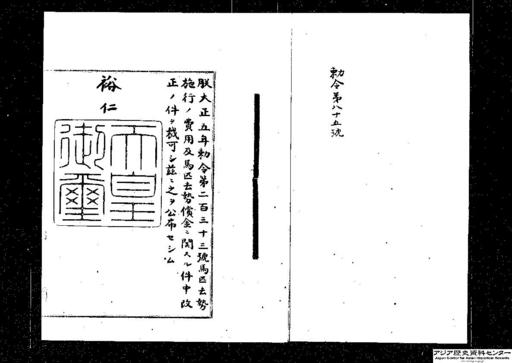 勅令第八十五號
朕大正五年勅令第二百三十三號馬匹去勢
施行ノ費用及馬匹去勢償金ニ關スル件中改
正ノ件ヲ裁可シ茲ニ之ヲ公布セシム
裕仁
天皇
御璽
アジア歴史資料センター
Japan Center for Asian Historical Records